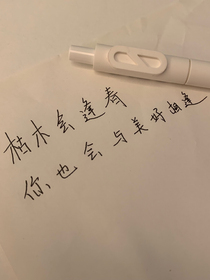 枯木会逢春
你也会与美好相逢